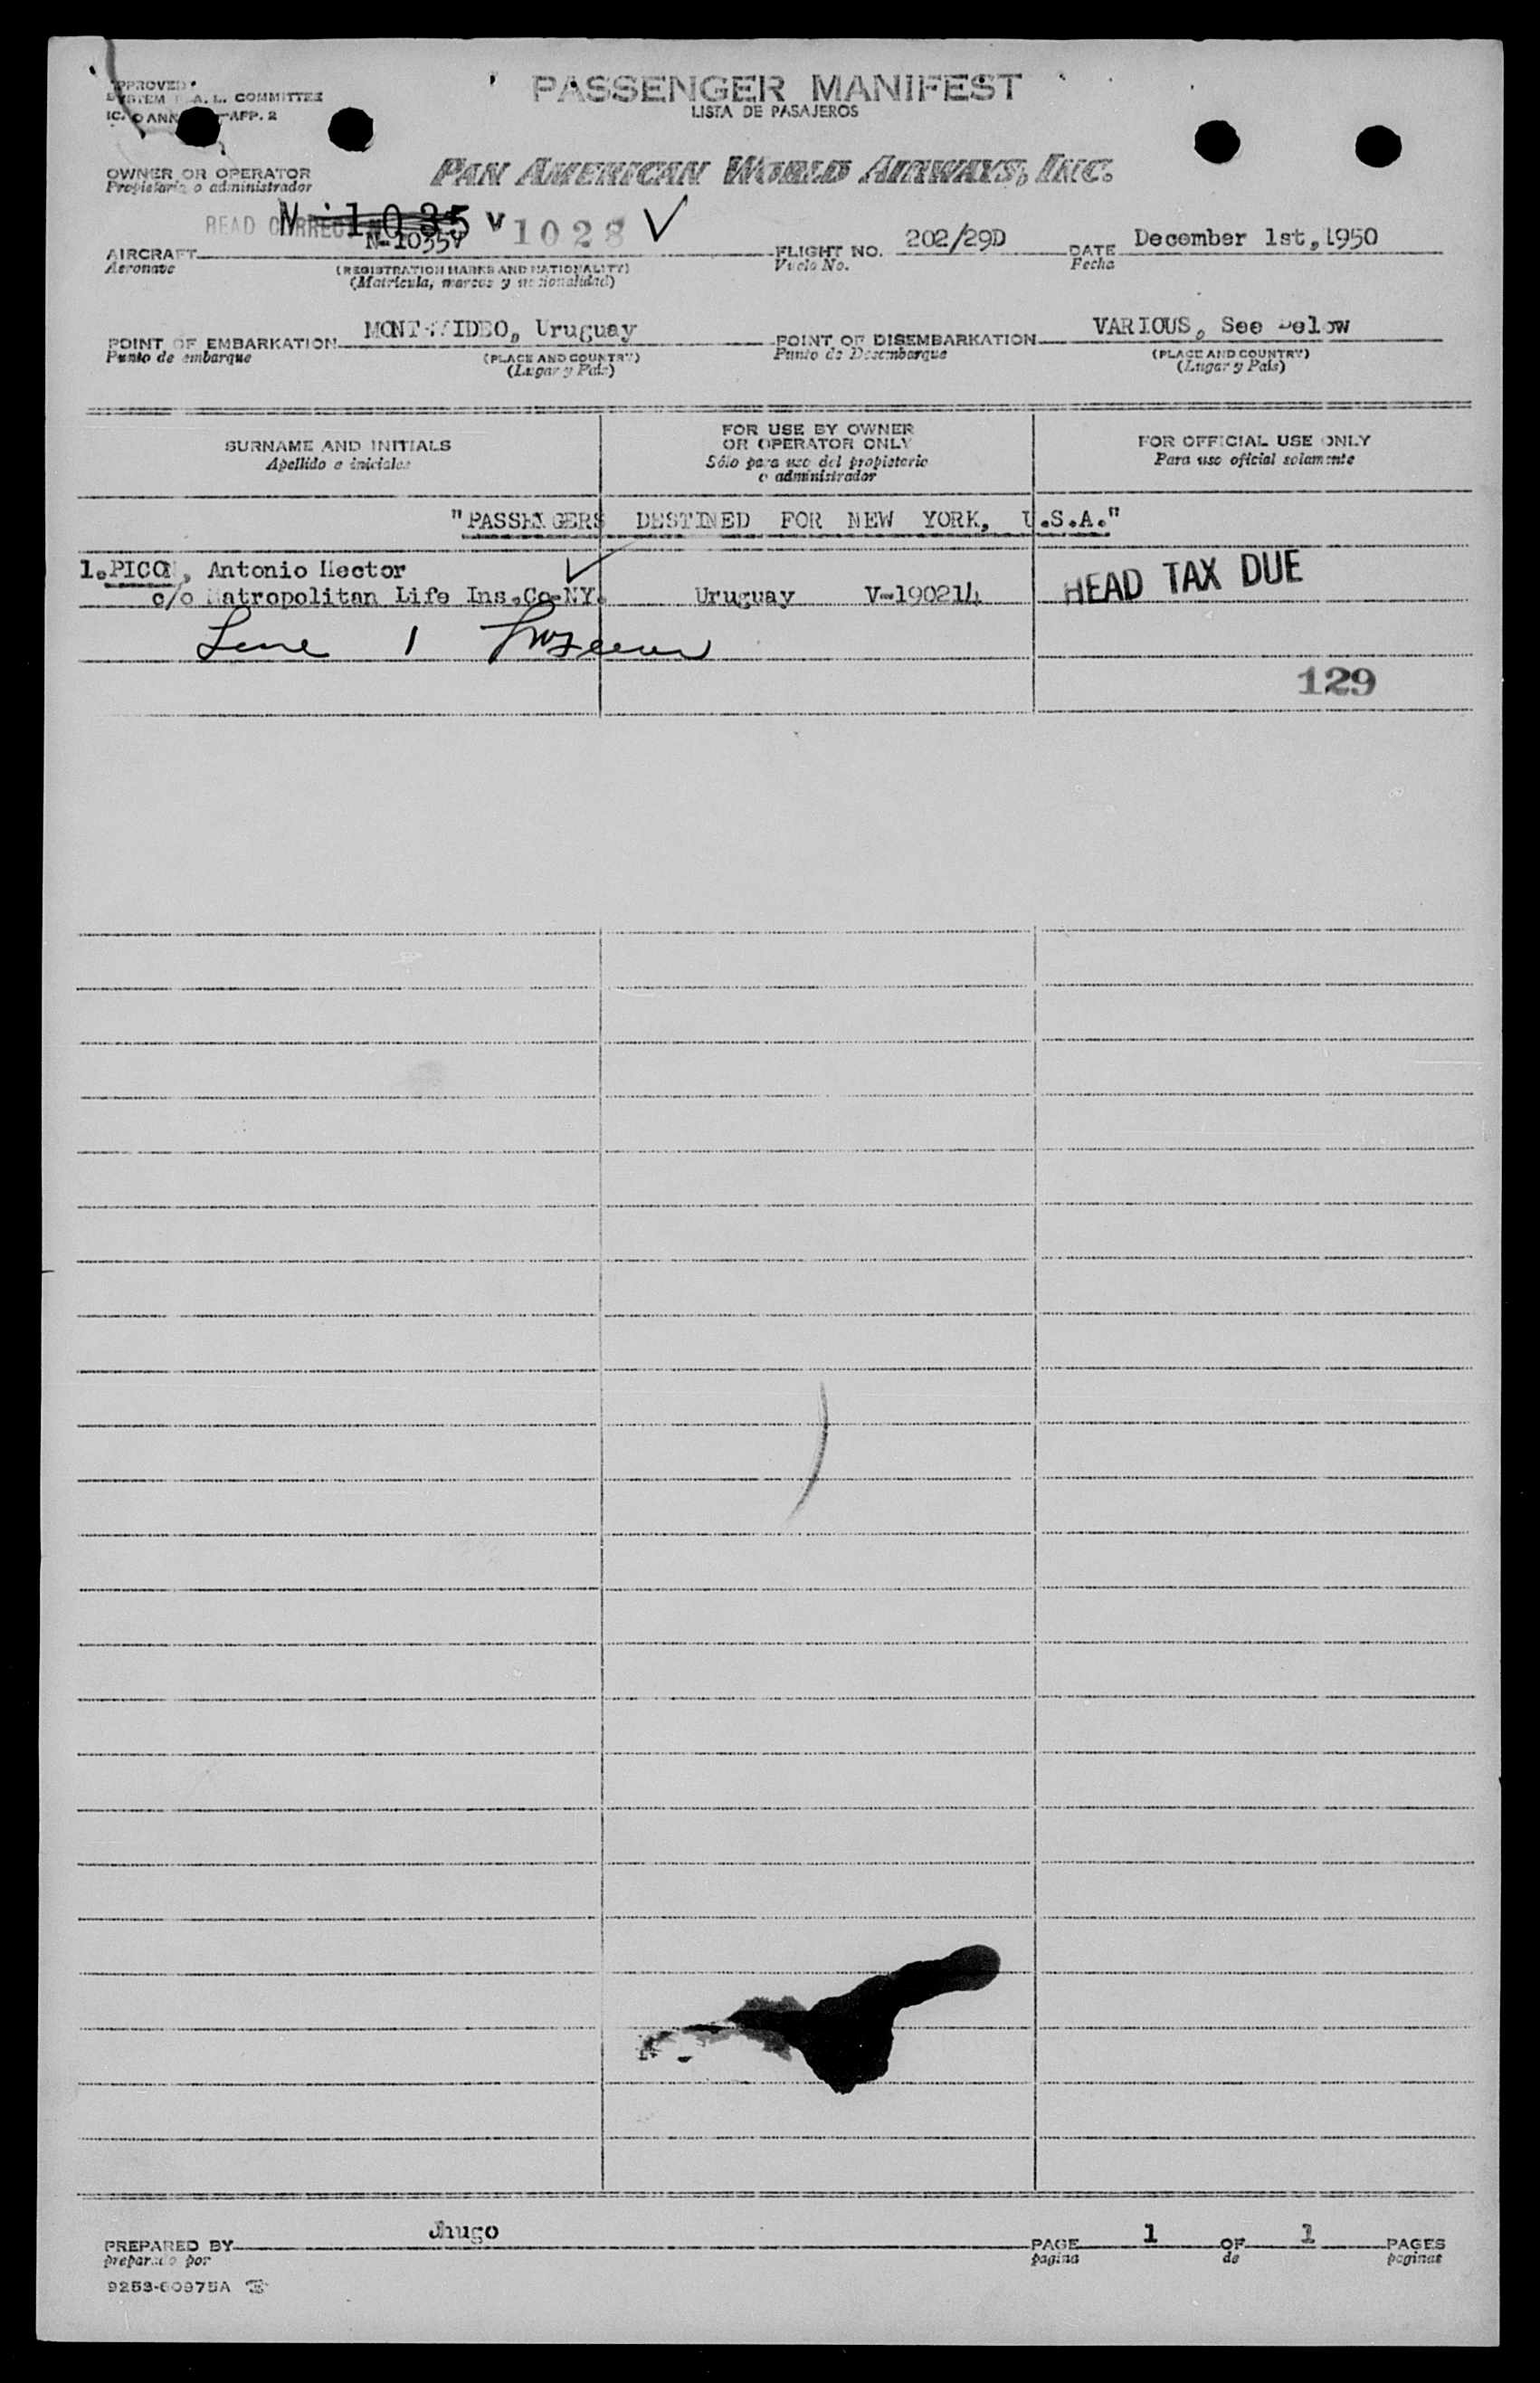 PASSENGER MANIFEST
LISTA DE PASAJEROS
APPROVED
SYSTEM A. L. COMMITTEE
APP. 2
OWNER OR OPERATOR
Propietario o administrador
PAN AMERICAN WORLD AIRWAYS, INC.
READ CORRECT N-1035 V 1028
AIRCRAFT N-1035V FLIGHT NO. 202/29D DATE December 1st, 1950
Aeronave (REGISTRATION MARKS AND NATIONALITY) Vuelo No. Fecha
(Matrícula, marcas y nacionalidad)
POINT OF EMBARKATION MONTEVIDEO, Uruguay POINT OF DISEMBARKATION VARIOUS, See Below
Punto de embarque (PLACE AND COUNTRY) Punto de Desembarque (PLACE AND COUNTRY)
(Lugar y País) (Lugar y País)
SURNAME AND INITIALS
Apellido e iniciales
FOR USE BY OWNER
OR OPERATOR ONLY
Sólo para uso del propietario
o administrador
FOR OFFICIAL USE ONLY
Para uso oficial solamente
"PASSENGERS DESTINED FOR NEW YORK, U.S.A."
1. PICON, Antonio Hector
c/o Matropolitan Life Ins.Co-NY. Uruguay V-190214 HEAD TAX DUE
Line 1
129
PREPARED BY Jhugo PAGE 1 OF 1 PAGES
preparado por pagina de paginas
9253-60975A